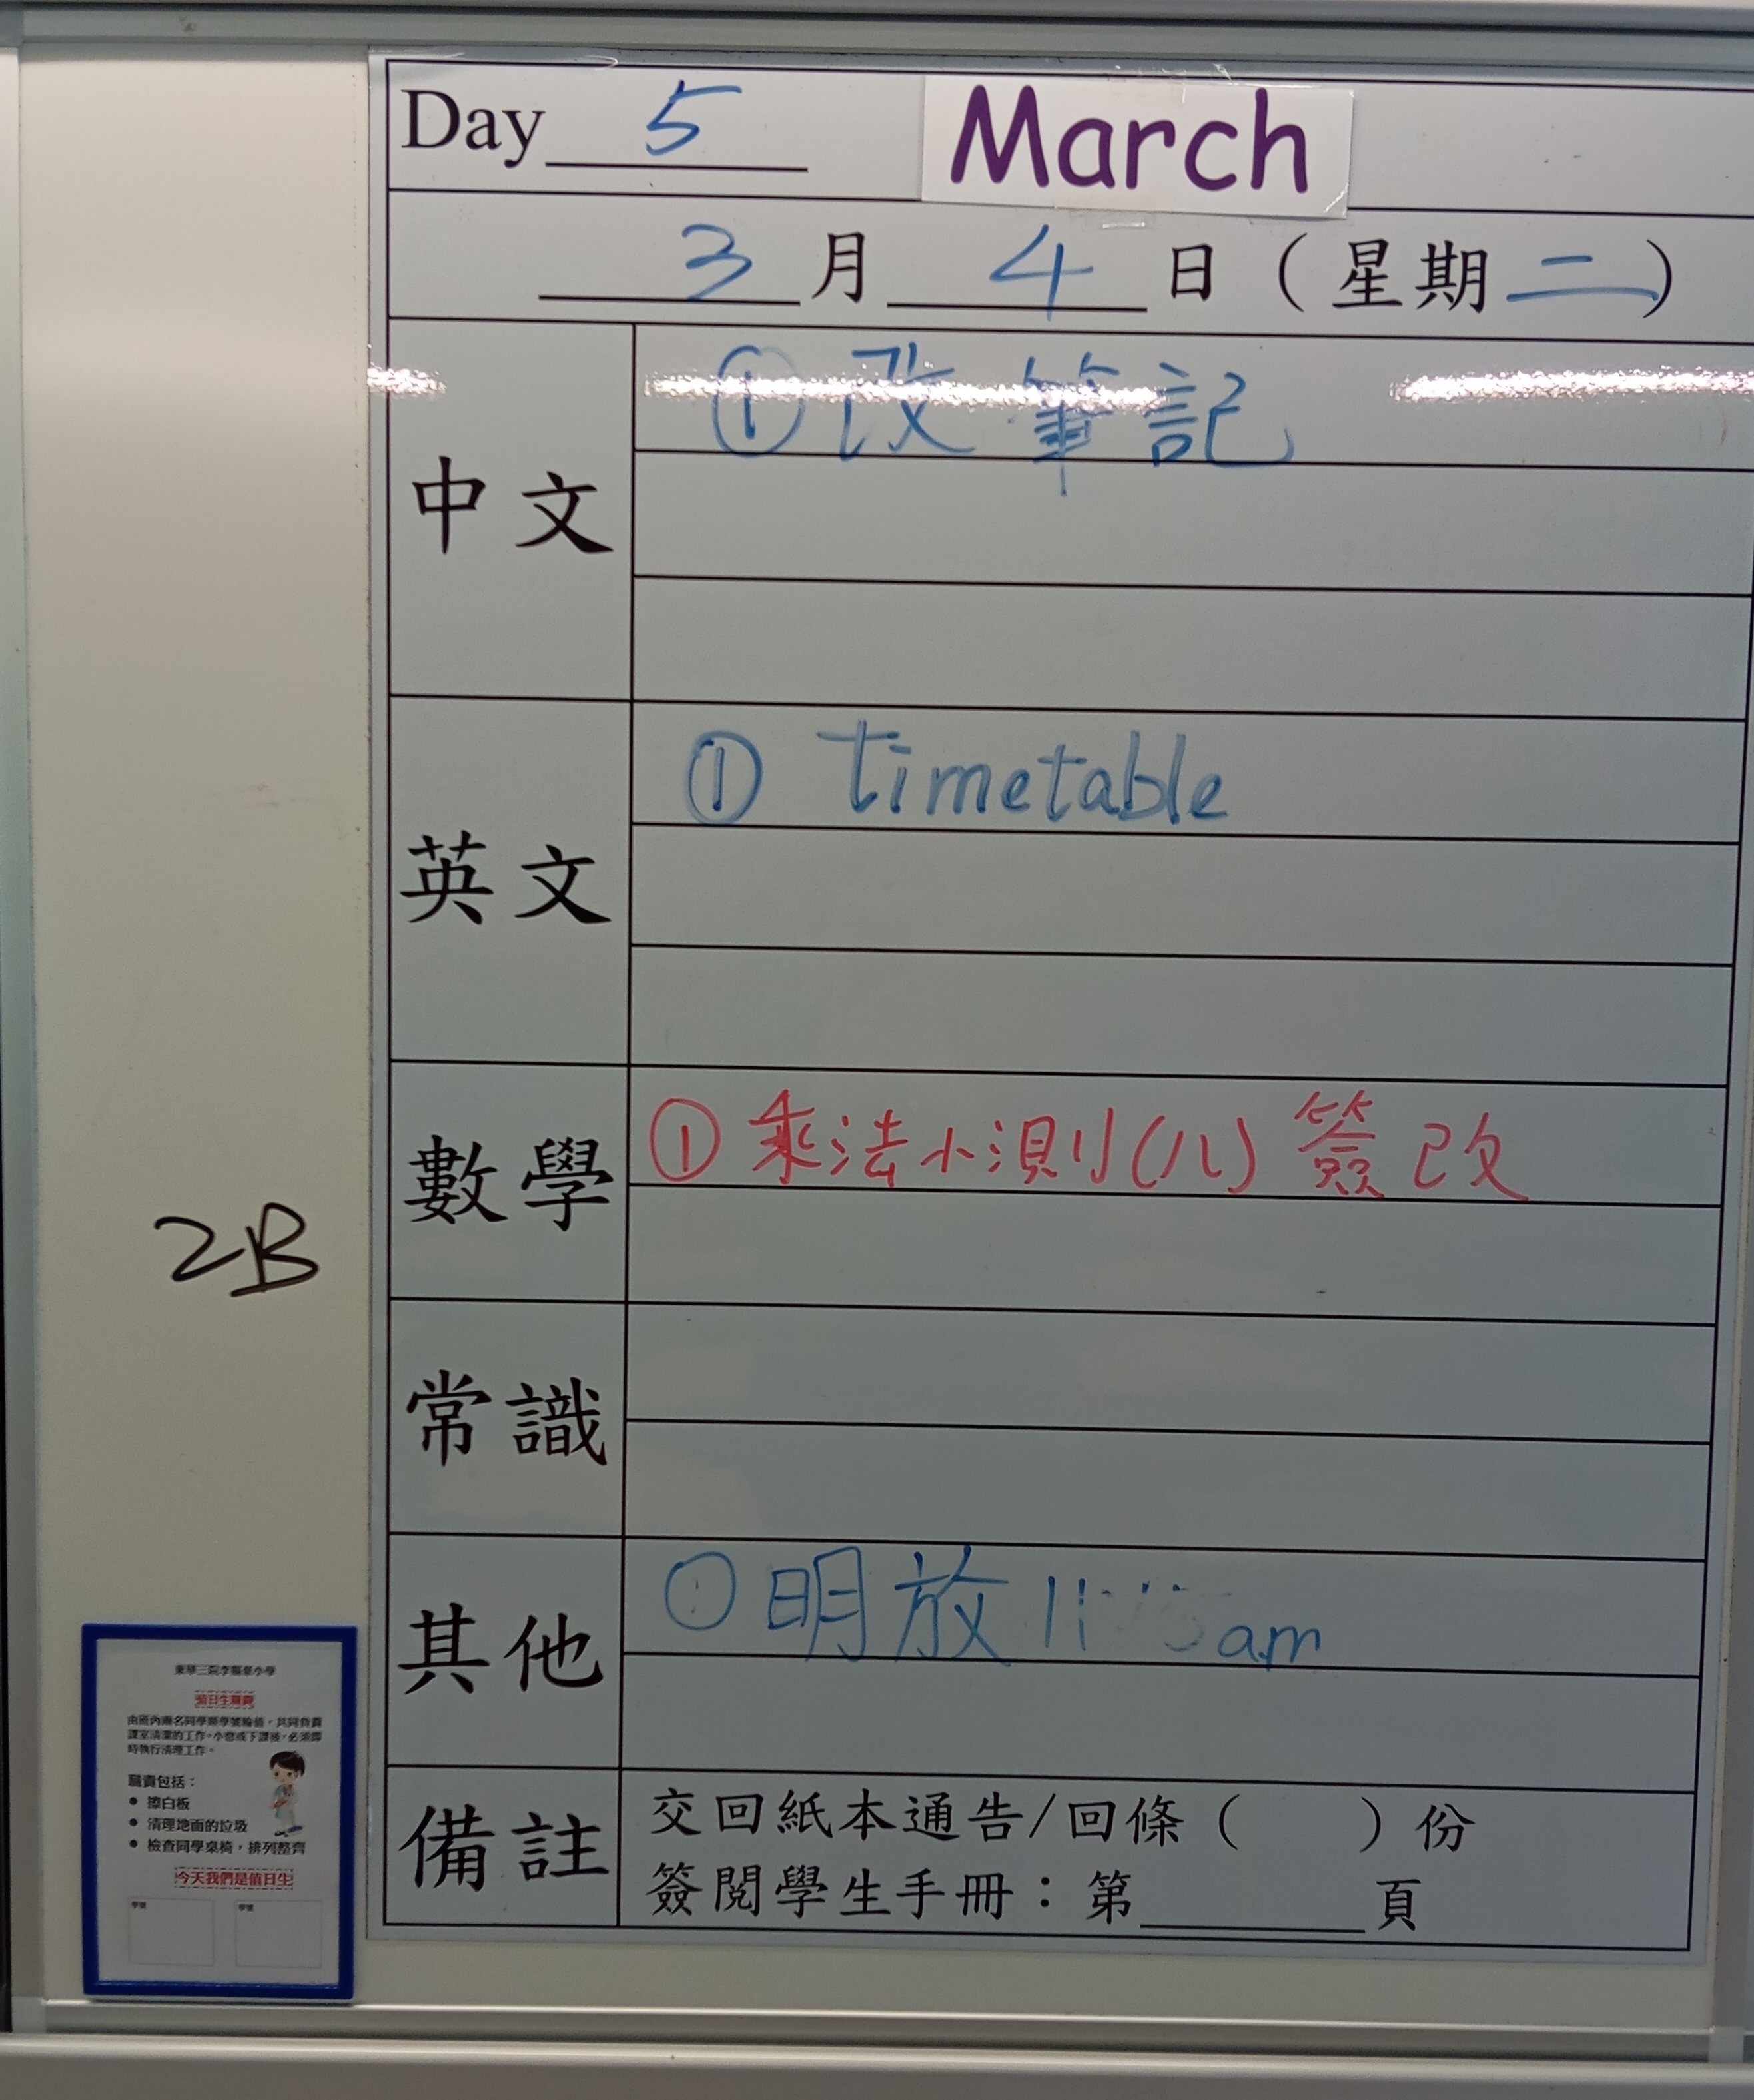 Day 5 March
3 月 4 日 ( 星期 二 )
中文 ① 改筆記
英文 ① timetable
數學 ① 乘法小測(八) 簽改
常識
其他 ① 明放 am
備註 交回紙本通告/回條 ( ) 份
簽閱學生手冊：第 頁
2B
值日生職責
由班內兩名同學順學號輪值，共同負責
課室清潔的工作。小息或下課後，必須即
時執行清理工作。
職責包括：
● 擦白板
● 清理地面的垃圾
● 檢查同學桌椅，排列整齊
今天我們是值日生
學號 學號